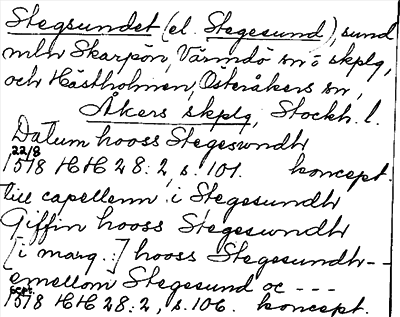 Stegsundet (el. Stegesund), sund
mln Skarpön, Värmdö sn o skplg,
och Hästholmen, Österåkers sn,
Åkers skplg, Stockh. l.
Datum hooss Stegeswndh
22/8
1578 HH 28:2, s. 101. koncept.
till capellenn i Stegesundh
Giffin hooss Stegeswndh
[i marg.:] hooss Stegesundh - -
emellom Stegesund oc - - -
sept.
1578 HH 28:2, s. 106. koncept.